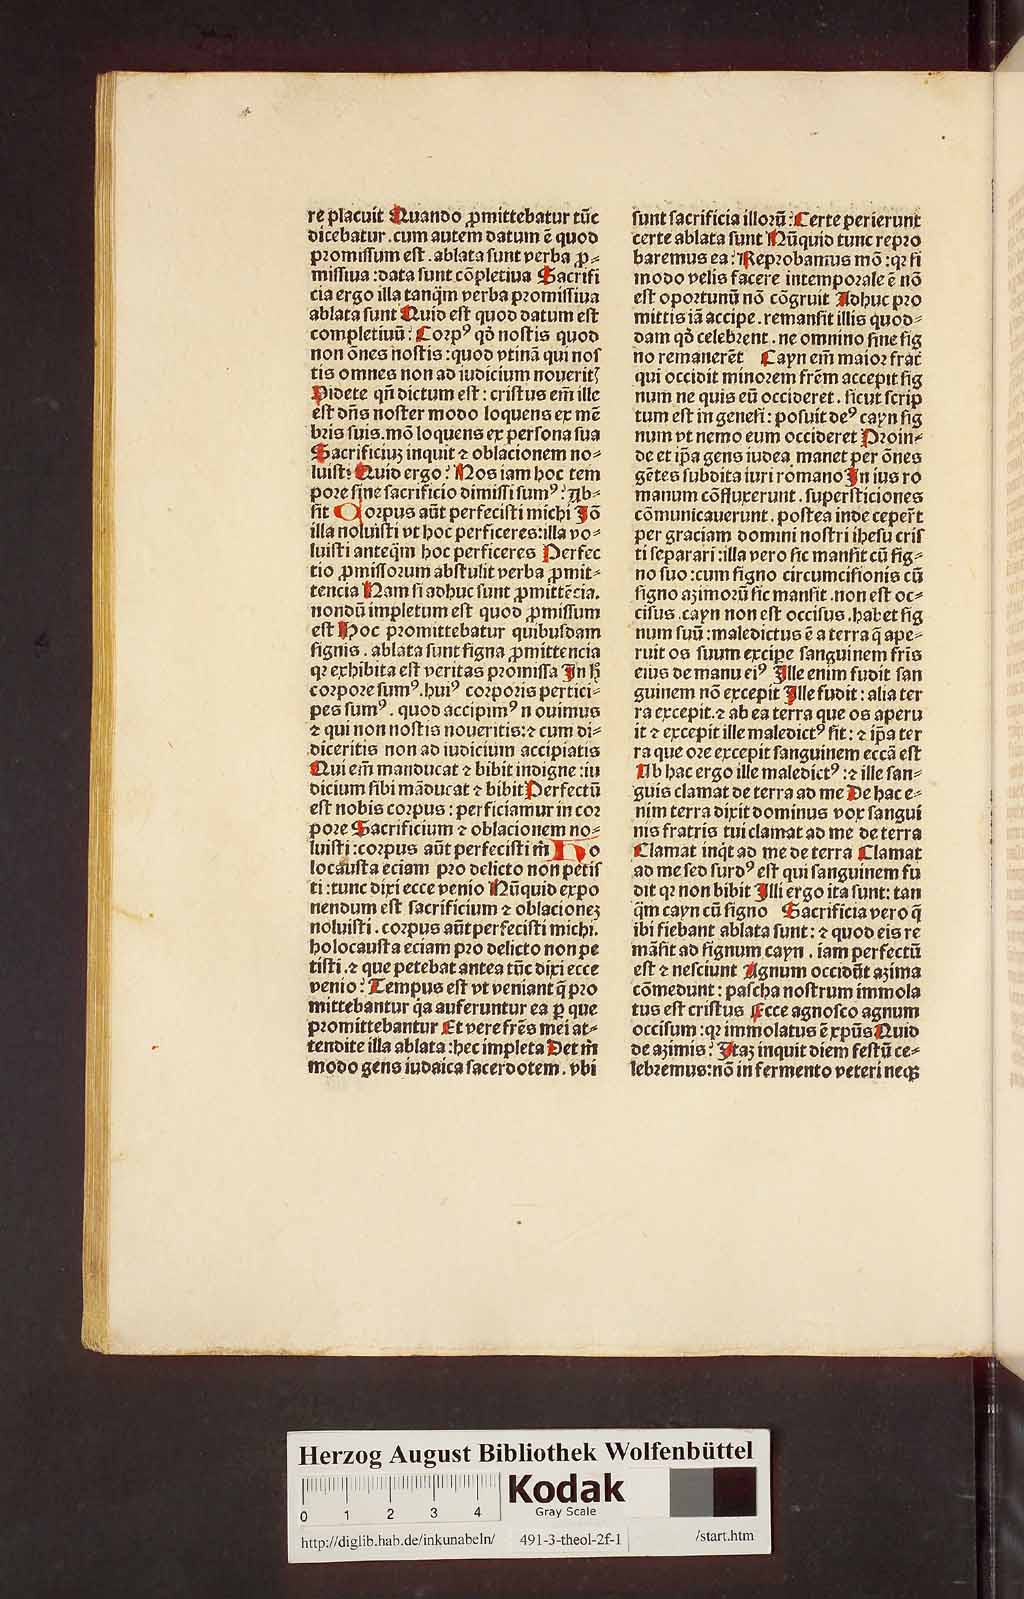 re placuit Quando ꝓmittebatur tūc
dicebatur . cum autem datum ē quod
promissum est . ablata sunt verba ꝓ⸗
missiua : data sunt cōpletiua Sacrifi
cia ergo illa tanq̄m verba promissiua
ablata sunt Quid est quod datum est
completiuū : Corpꝰ qd̛ nostis quod
non ōnes nostis : quod vtinā qui nos
tis omnes non ad iudicium noueritꝭ
Videte qn̄ dictum est : cristus em̄ ille
est dn̄s noster modo loquens ex mē
bris suis . mō loquens ex persona sua
Sacrificiuꝫ inquit ⁊ oblacionem no⸗
luisti Quid ergo : Nos iam hoc tem
pore sine sacrificio dimissi sumꝰ : Ab⸗
sit Corpus aūt perfecisti michi Iō
illa noluisti vt hoc perficeres : illa vo⸗
luisti anteq̄m hoc perficeres Perfec
tio ꝓmissorum abstulit verba ꝓmit⸗
tencia Nam si adhuc sunt ꝓmittēcia .
nondū impletum est quod ꝓmissum
est Hoc promittebatur quibusdam
signis . ablata sunt signa ꝓmittencia
qꝛ exhibita est veritas promissa In h̄
corpore sumꝰ . huiꝰ corporis pertici⸗
pes sumꝰ . quod accipimꝰ n ouimus
⁊ qui non nostis noueritis : ⁊ cum di⸗
diceritis non ad iudicium accipiatis
Qui em̄ manducat ⁊ bibit indigne : iu
dicium sibi māducat ⁊ bibit Perfectū
est nobis corpus : perficiamur in cor
pore Sacrificium ⁊ oblacionem no⸗
luisti : corpus aūt perfecisti m̄ Ho
locausta eciam pro delicto non petis
ti : tunc dixi ecce venio Nūquid expo
nendum est sacrificium ⁊ oblacioneꝫ
noluisti . corpus aūt perfecisti michi .
holocausta eciam pro delicto non pe
tisti . ⁊ que petebat antea tūc dixi ecce
venio : Tempus est vt veniant q̄ pro
mittebantur q̄a auferuntur ea ꝑ que
promittebantur Et vere frēs mei at⸗
tendite illa ablata : hec impleta Det m̄
modo gens iudaica sacerdotem . vbi
sunt sacrificia illorū : Certe perierunt
certe ablata sunt Nūquid tunc repro
baremus ea : Reprobamus mō : qꝛ si
modo velis facere intemporale ē nō
est oportunū nō cōgruit Adhuc pro
mittis iā accipe . remansit illis quod⸗
dam qd̛ celebrent . ne omnino sine sig
no remanerēt Cayn em̄ maior frat̄
qui occidit minorem frēm accepit sig
num ne quis eū occideret . sicut scrip
tum est in genesi : posuit deꝰ cayn sig
num vt nemo eum occideret Proin⸗
de et ip̄a gens iudea manet per ōnes
gētes subdita iuri romano In ius ro
manum cōfluxerunt . supersticiones
cōmunicauerunt . postea inde ceper̄t
per graciam domini nostri ihesu cris
ti separari : illa vero sic mansit cū sig⸗
no suo : cum signo circumcisionis cū
signo azimorū sic mansit . non est oc⸗
cisus . cayn non est occisus . habet sig
num suū : maledictus ē a terra q̄ ape⸗
ruit os suum excipe sanguinem fr̄is
eius de manu eiꝰ Ille enim fudit san
guinem nō excepit Ille fudit : alia ter
ra excepit . ⁊ ab ea terra que os aperu
it ⁊ excepit ille maledictꝰ sit : ⁊ ip̄a ter
ra que ore excepit sanguinem eccā est
Ab hac ergo ille maledictꝰ : ⁊ ille san⸗
guis clamat de terra ad me De hac e⸗
nim terra dixit dominus vox sangui
nis fratris tui clamat ad me de terra
Clamat inq̄t ad me de terra Clamat
ad me sed surdꝰ est qui sanguinem fu
dit qꝛ non bibit Illi ergo ita sunt : tan
q̄m cayn cū signo Sacrificia vero q̄
ibi fiebant ablata sunt : ⁊ quod eis re
māsit ad signum cayn . iam perfectū
est ⁊ nesciunt Agnum occidūt azima
cōmedunt : pascha nostrum immola
tus est cristus Ecce agnosco agnum
occisum : qꝛ immolatus ē xp̄us Quid
de azimis : Itaꝫ inquit diem festū ce⸗
lebremus : nō in fermento veteri neqꝫ
Herzog August Bibliothek Wolfenbüttel
0 1 2 3 4
Kodak
Gray Scale
http://diglib.hab.de/inkunabeln/ 491-3-theol-2f-1 /start.htm